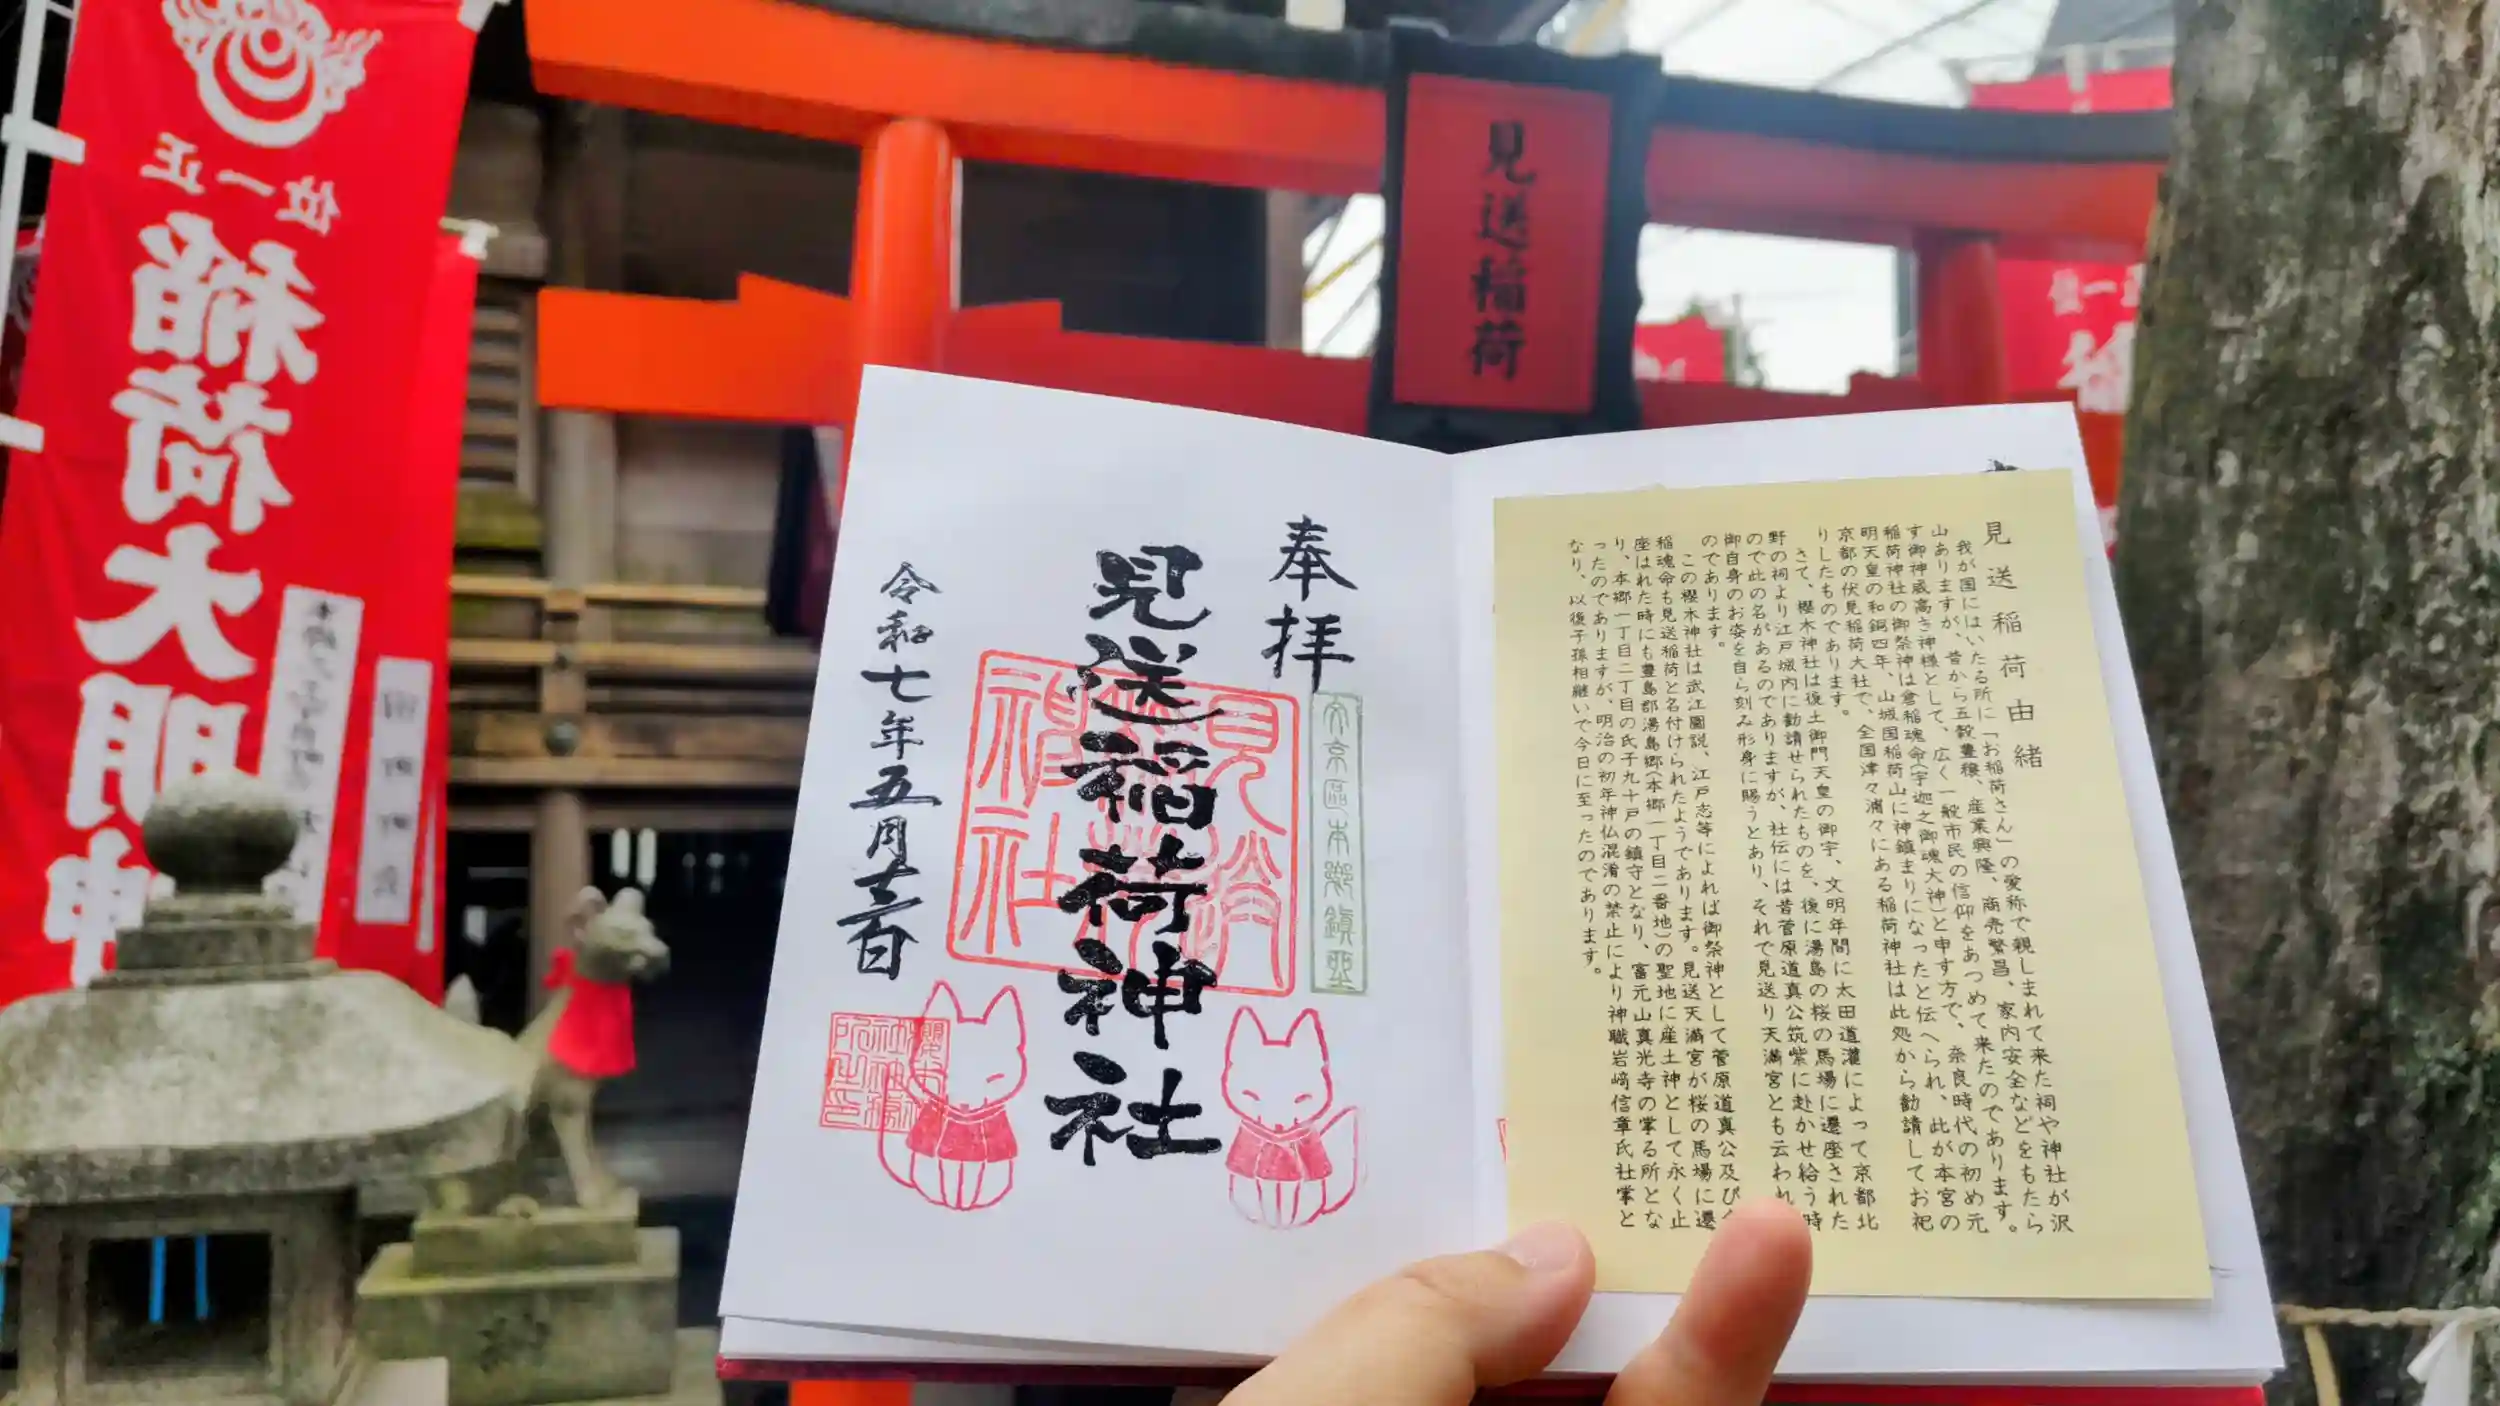 正一位
稲荷大明神
見送稲荷
奉拝
見送稲荷神社
令和七年五月
文京區本郷鎮座
見送稲荷由緒
我が国にはいたる所に「お稲荷さん」の愛称で親しまれて来た祠や神社が沢
山ありますが、昔から五穀豊穣、産業興隆、商売繁昌、家内安全などをもたら
す御神威高き神様として、広く一般市民の信仰をあつめて来たのであります。
稲荷神社の御祭神は倉稲魂命(宇迦之御魂大神)と申す方で、奈良時代の初め元
明天皇の和銅四年、山城国稲荷山に神鎮まりになったと伝へられ、此が本宮の
京都の伏見稲荷大社で、全国津々浦々にある稲荷神社は此処から勧請してお祀
りしたものであります。
さて、櫻木神社は後土御門天皇の御宇、文明年間に太田道灌によって京都北
野の祠より江戸城内に勧請せられたものを、後に湯島の桜の馬場に遷座された
ので此の名があるのでありますが、社伝には昔菅原道真公筑紫に赴かせ給う時
御自身のお姿を自ら刻み形身に賜うとあり、それで見送り天満宮とも云われ
のであります。
この櫻木神社は武江圖説、江戸志等によれば御祭神として菅原道真公及び
稲魂命も見送稲荷と名付けられたようであります。見送天満宮が桜の馬場に遷
座はれた時にも豊島郡湯島郷(本郷一丁目二番地)の聖地に産土神として永く止
り、本郷一丁目二丁目の氏子九十戸の鎮守となり、富元山真光寺の掌る所とな
ったのでありますが、明治の初年神仏混淆の禁止により神職岩﨑信章氏社掌と
なり、以後子孫相継いで今日に至ったのであります。